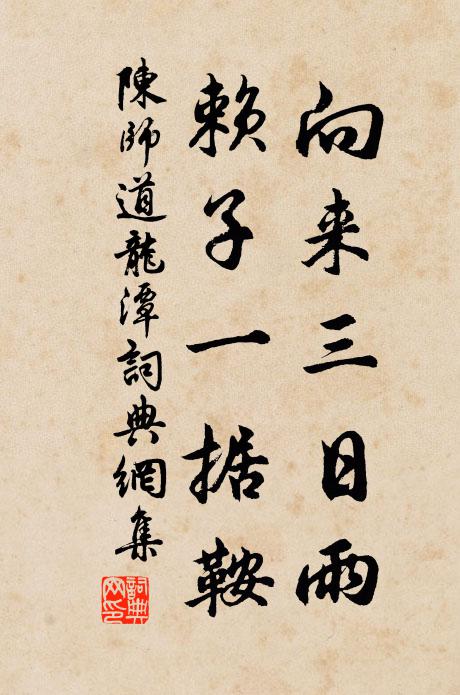 向来三日雨
赖子一据鞍
陳師道龍潭詞典網集
詞典网印